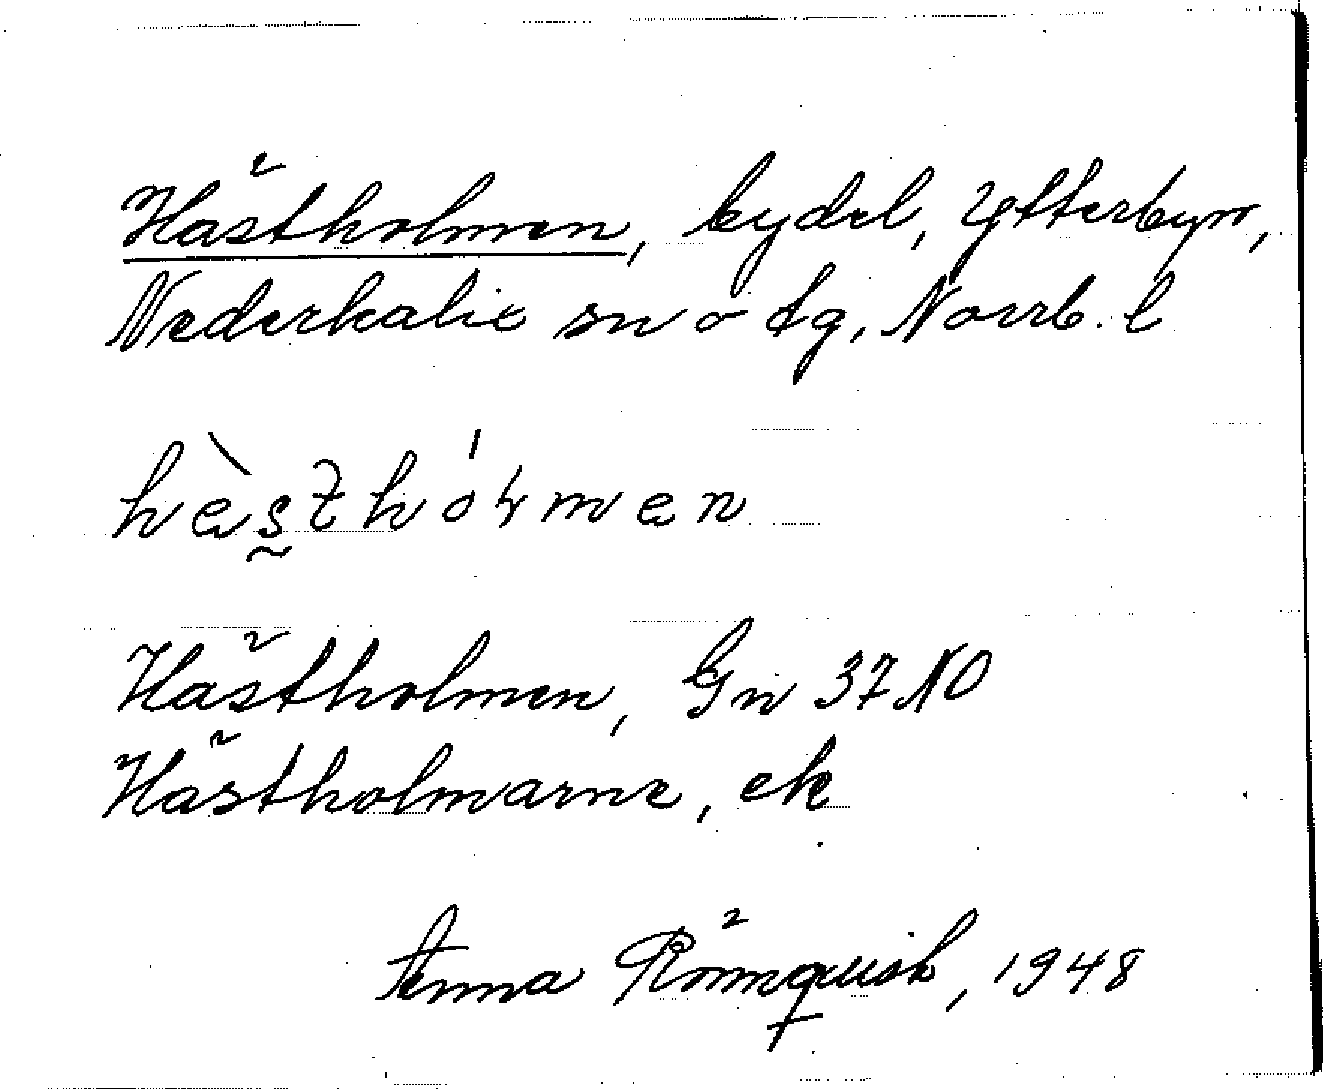 Hästholmen, bydel, Ytterbyn,
Nederkalix sn o tg, Norrb. l
hästhólmen
Hästholmen, Gn 37 NO
Hästholmarne, ek
Anna Rönnquist, 1948